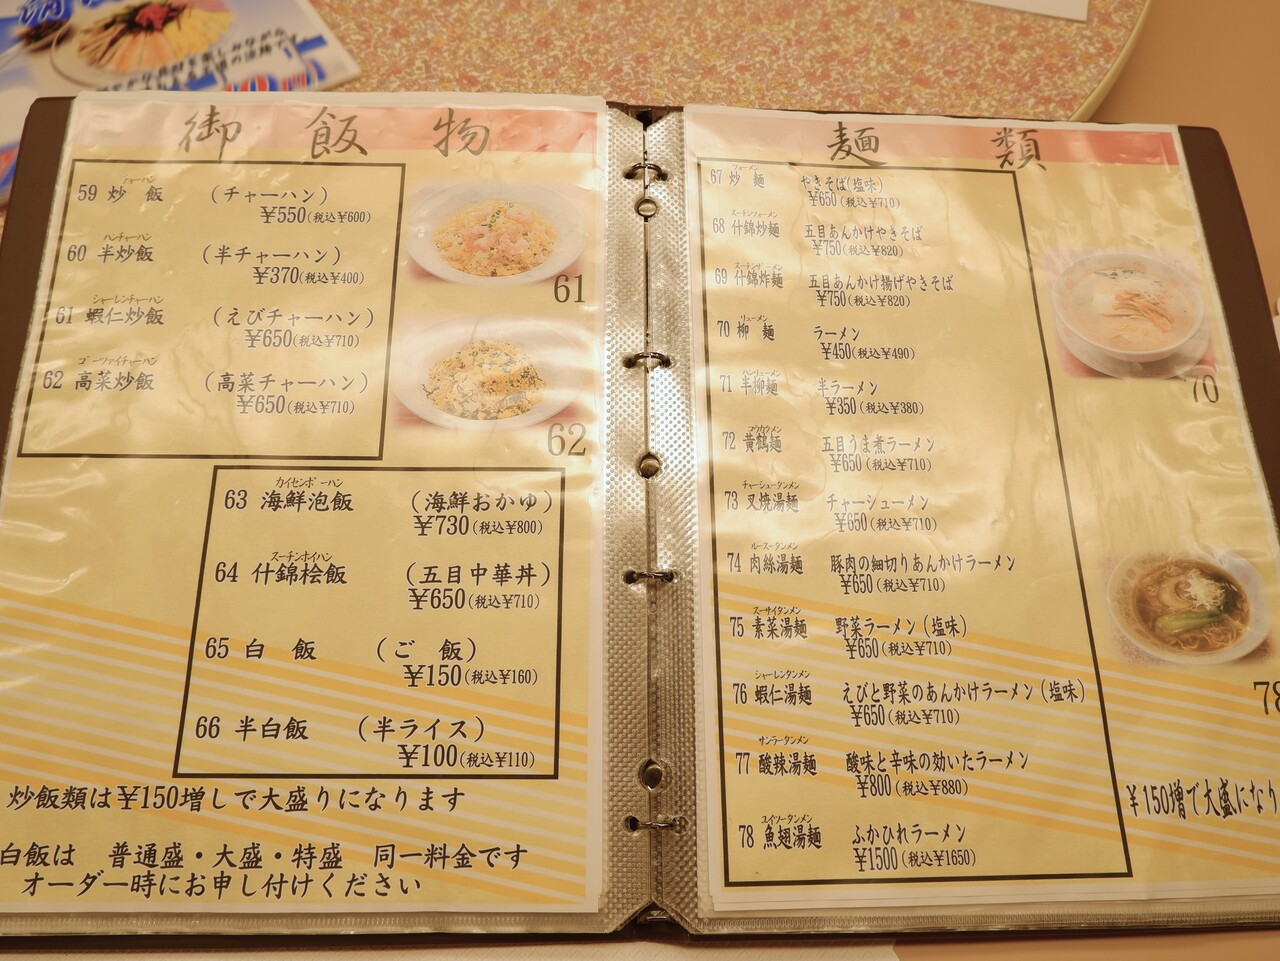 御飯物
チャーハン
59 炒飯 (チャーハン)
¥550(税込¥600)
ハンチャーハン
60 半炒飯 (半チャーハン)
¥370(税込¥400)
シャーレンチャーハン
61 蝦仁炒飯 (えびチャーハン)
¥650(税込¥710)
ゴーツァイチャーハン
62 高菜炒飯 (高菜チャーハン)
¥650(税込¥710)
61
62
カイセンポーハン
63 海鮮泡飯 (海鮮おかゆ)
¥730(税込¥800)
スーチンホイハン
64 什錦桧飯 (五目中華丼)
¥650(税込¥710)
65 白飯 (ご飯)
¥150(税込¥160)
66 半白飯 (半ライス)
¥100(税込¥110)
炒飯類は¥150増しで大盛りになります
白飯は 普通盛・大盛・特盛 同一料金です
オーダー時にお申し付けください
麺類
フォーメン
67 炒麺 やきそば(塩味)
¥650(税込¥710)
スーチンフォーメン
68 什錦炒麺 五目あんかけやきそば
¥750(税込¥820)
69 什錦炸麺 五目あんかけ揚げやきそば
¥750(税込¥820)
リューメン
70 柳麺 ラーメン
¥450(税込¥490)
ハンリューメン
71 半柳麺 半ラーメン
¥350(税込¥380)
72 黄鶴麺 五目うま煮ラーメン
¥650(税込¥710)
チャーシュータンメン
73 叉焼湯麺 チャーシューメン
¥650(税込¥710)
ルースータンメン
74 肉絲湯麺 豚肉の細切りあんかけラーメン
¥650(税込¥710)
スーサイタンメン
75 素菜湯麺 野菜ラーメン(塩味)
¥650(税込¥710)
シャーレンタンメン
76 蝦仁湯麺 えびと野菜のあんかけラーメン(塩味)
¥650(税込¥710)
サンラータンメン
77 酸辣湯麺 酸味と辛味の効いたラーメン
¥800(税込¥880)
ユイツータンメン
78 魚翅湯麺 ふかひれラーメン
¥1500(税込¥1650)
70
78
¥150増で大盛になり